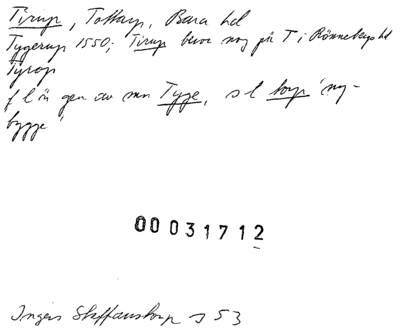 Tirup, Tottarp, Bara hd
Tygerup 1550; Tirup beror nog på T i Rönnebergs hd
Tyrop
f l är gen av mn Tyge, s l torp 'ny-
bygge'
00031712
Ingers Staffanstorp s 53